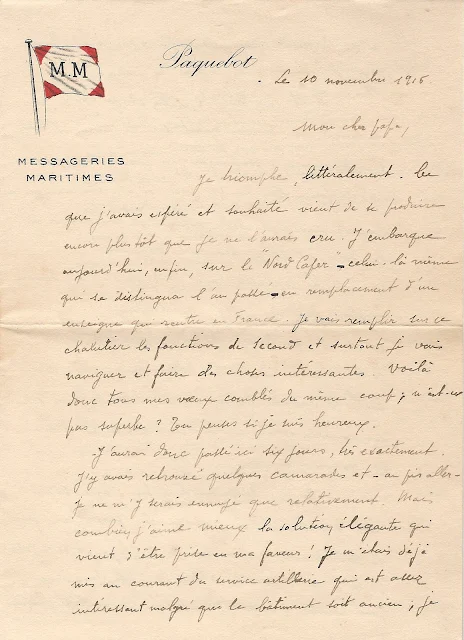 M.M
Paquebot
MESSAGERIES
MARITIMES
Le 10 novembre 1916.
Mon cher papa,
Je triomphe, littéralement. Ce
que j'avais espéré et souhaité vient de se produire
encore plus tôt que je ne l'aurais cru. J'embarque
aujourd'hui, enfin, sur le "Nord Caper" - celui-là même
qui se distingua l'an passé - en remplacement d'un
enseigne qui rentre en France. Je vais remplir sur ce
chalutier les fonctions de second et surtout je vais
naviguer et faire des choses intéressantes. Voilà
donc tous mes vœux comblés du même coup ; n'est-ce
pas superbe ? Tu penses si je suis heureux.
J'aurai donc passé ici six jours, très exactement.
J'y avais retrouvé quelques camarades et - au pis aller -
je ne m'y serais ennuyé que relativement. Mais
combien j'aime mieux la solution élégante qui
vient d'être prise en ma faveur ! Je m'étais déjà
mis au courant du service artillerie qui est assez
intéressant malgré que le bâtiment soit ancien ; je